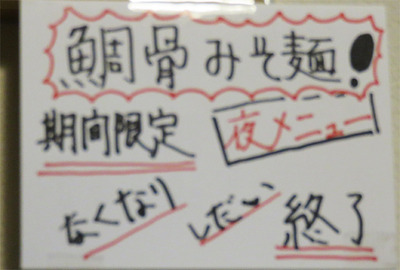 鯛骨みそ麺!
期間限定
夜メニュー
なくなり しだい 終了